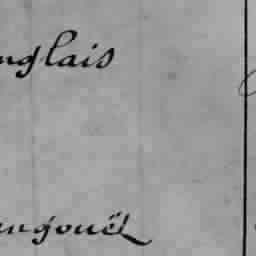 nglais
ngouët